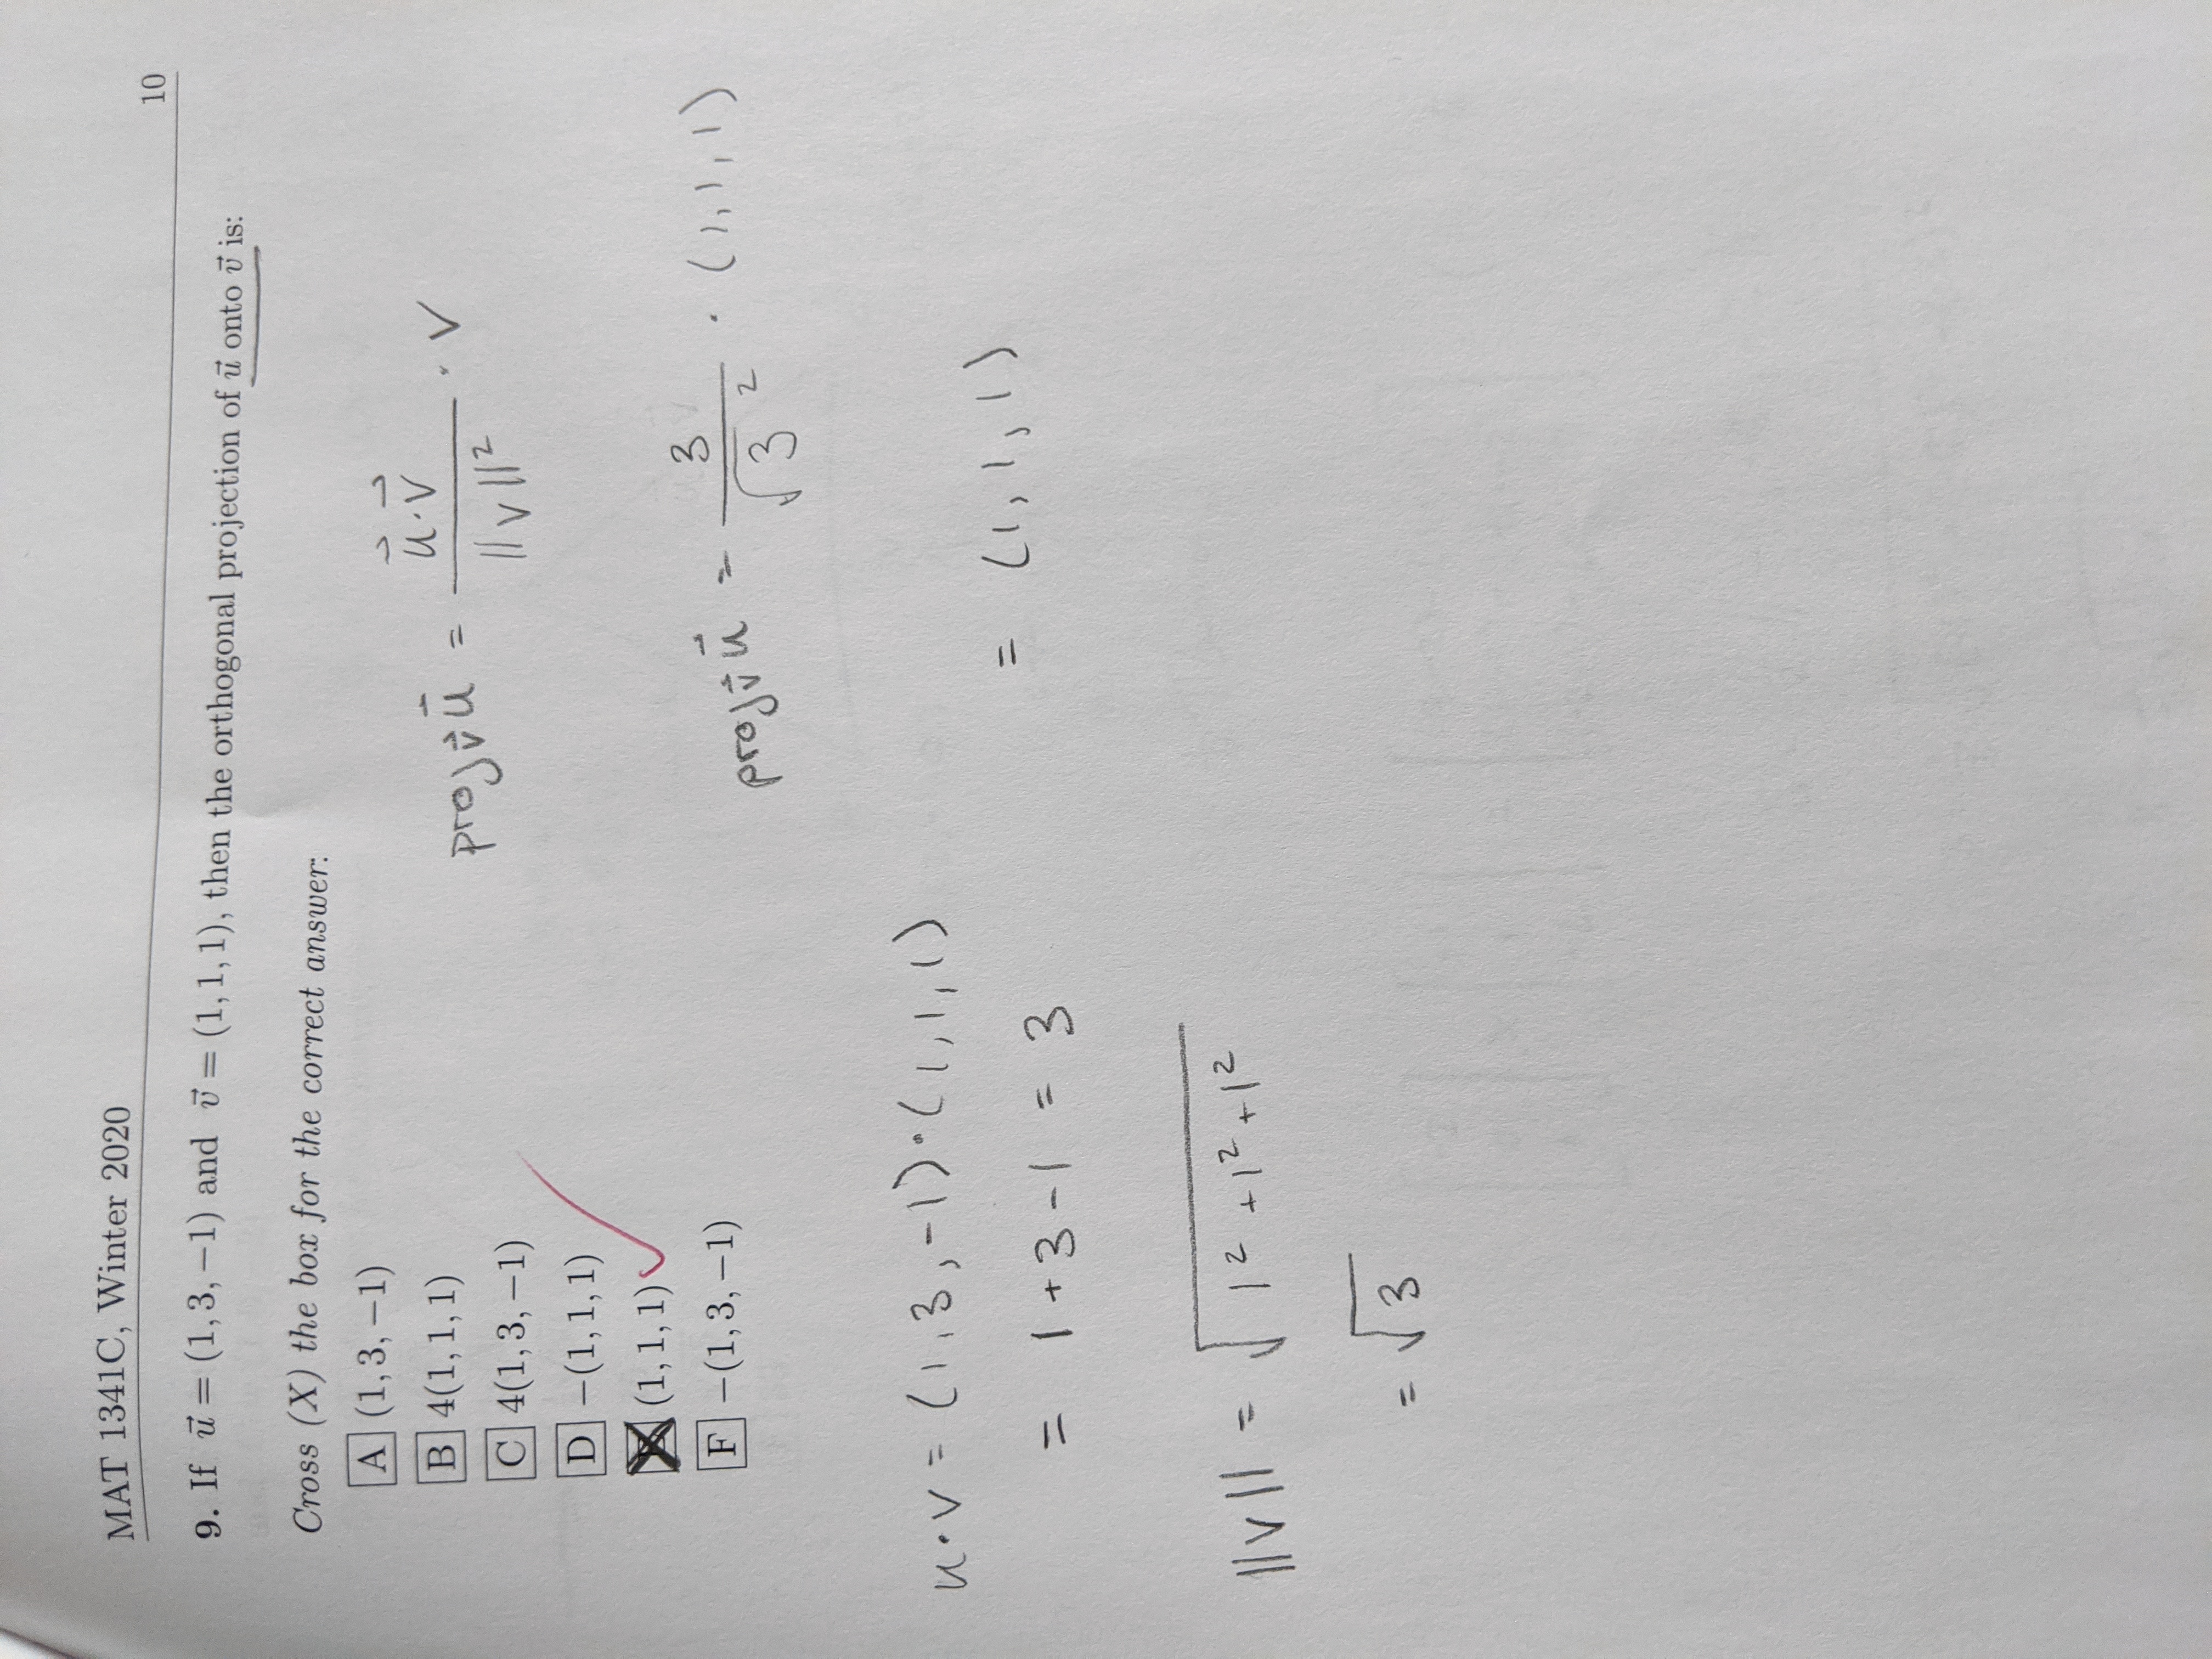 MAT 1341C, Winter 2020 10
9. If u⃗ = (1, 3, −1) and v⃗ = (1, 1, 1), then the orthogonal projection of u⃗ onto v⃗ is:
Cross (X) the box for the correct answer:
A (1, 3, −1)
B 4(1, 1, 1)
C 4(1, 3, −1)
D −(1, 1, 1)
(1, 1, 1)
F −(1, 3, −1)
proj_v⃗ u⃗ = (u⃗·v⃗)/||v||² · v
proj_v⃗ u⃗ = 3/√3² · (1,1,1)
= (1,1,1)
u·v = (1,3,-1)·(1,1,1)
= 1+3-1 = 3
||v|| = √(1²+1²+1²)
= √3